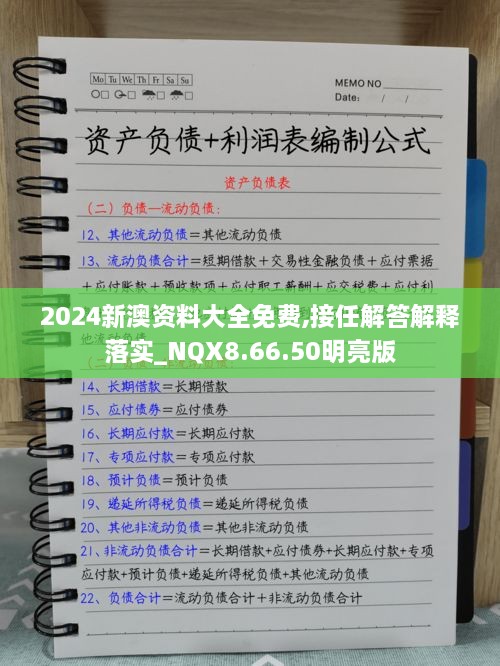 Mo Tu We Th Fr Sa Su
MEMO NO
Date: / /
资产负债+利润表编制公式
资产负债表
(二)负债—流动负债:
12、其他流动负债=其他流动负债
13、流动负债合计=短期借款+交易性金融负债+应付票据
+应付账款+预收款项+应付职工薪酬+应交税费+应付利
2024新澳资料大全免费,接任解答解释
落实_NQX8.66.50明亮版
14、长期借款=长期借款
15、应付债券=应付债券
16、长期应付款=长期应付款
17、专项应付款=专项应付款
18、预计负债=预计负债
19、递延所得税负债=递延所得税负债
20、其他非流动负债=其他非流动负债
21、非流动负债合计=长期借款+应付债券+长期应付款+专项
应付款+预计负债+递延所得税负债+其他流动负债
22、负债合计=流动负债合计+非流动负债合计